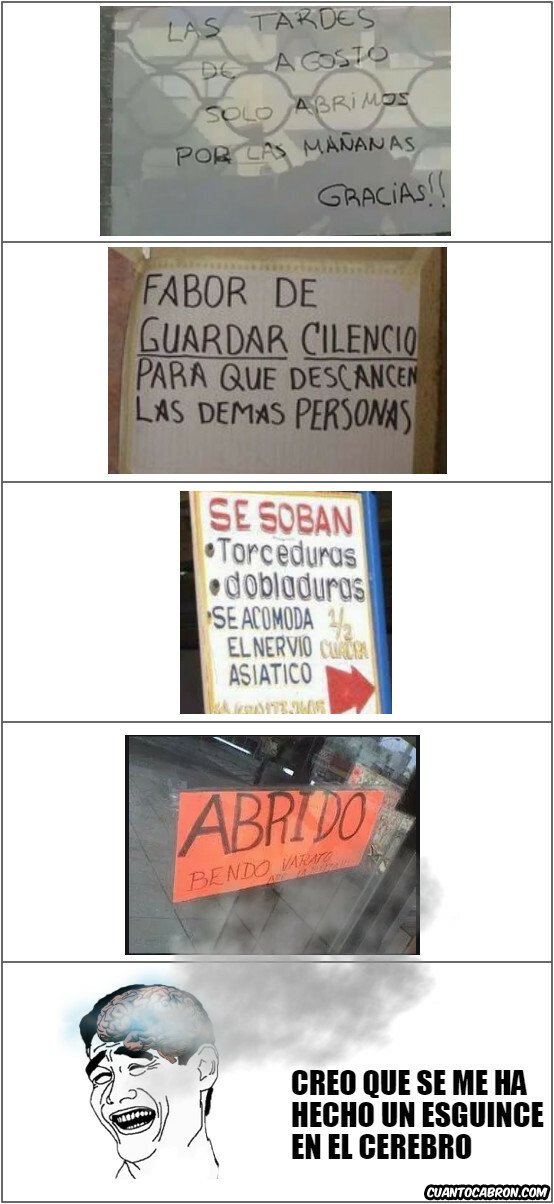 LAS TARDES
DE AGOSTO
SOLO ABRIMOS
POR LAS MAÑANAS
GRACIAS!!
FABOR DE
GUARDAR CILENCIO
PARA QUE DESCANCEN
LAS DEMAS PERSONAS
SE SOBAN
•Torceduras
•dobladuras
•SE ACOMODA
EL NERVIO
ASIATICO
1/2
CUADRA
ABRIDO
BENDO VARATO
CREO QUE SE ME HA
HECHO UN ESGUINCE
EN EL CEREBRO
CUANTOCABRON.COM